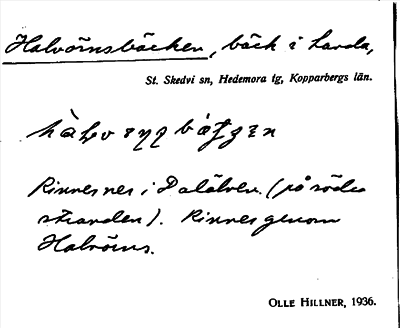 Halvörnsbäcken, bäck i Landa,
St. Skedvi sn, Hedemora tg, Kopparbergs län.
Rinner ner i Dalälven. (på södra
stranden). Rinner genom
Halvörns.
OLLE HILLNER, 1936.